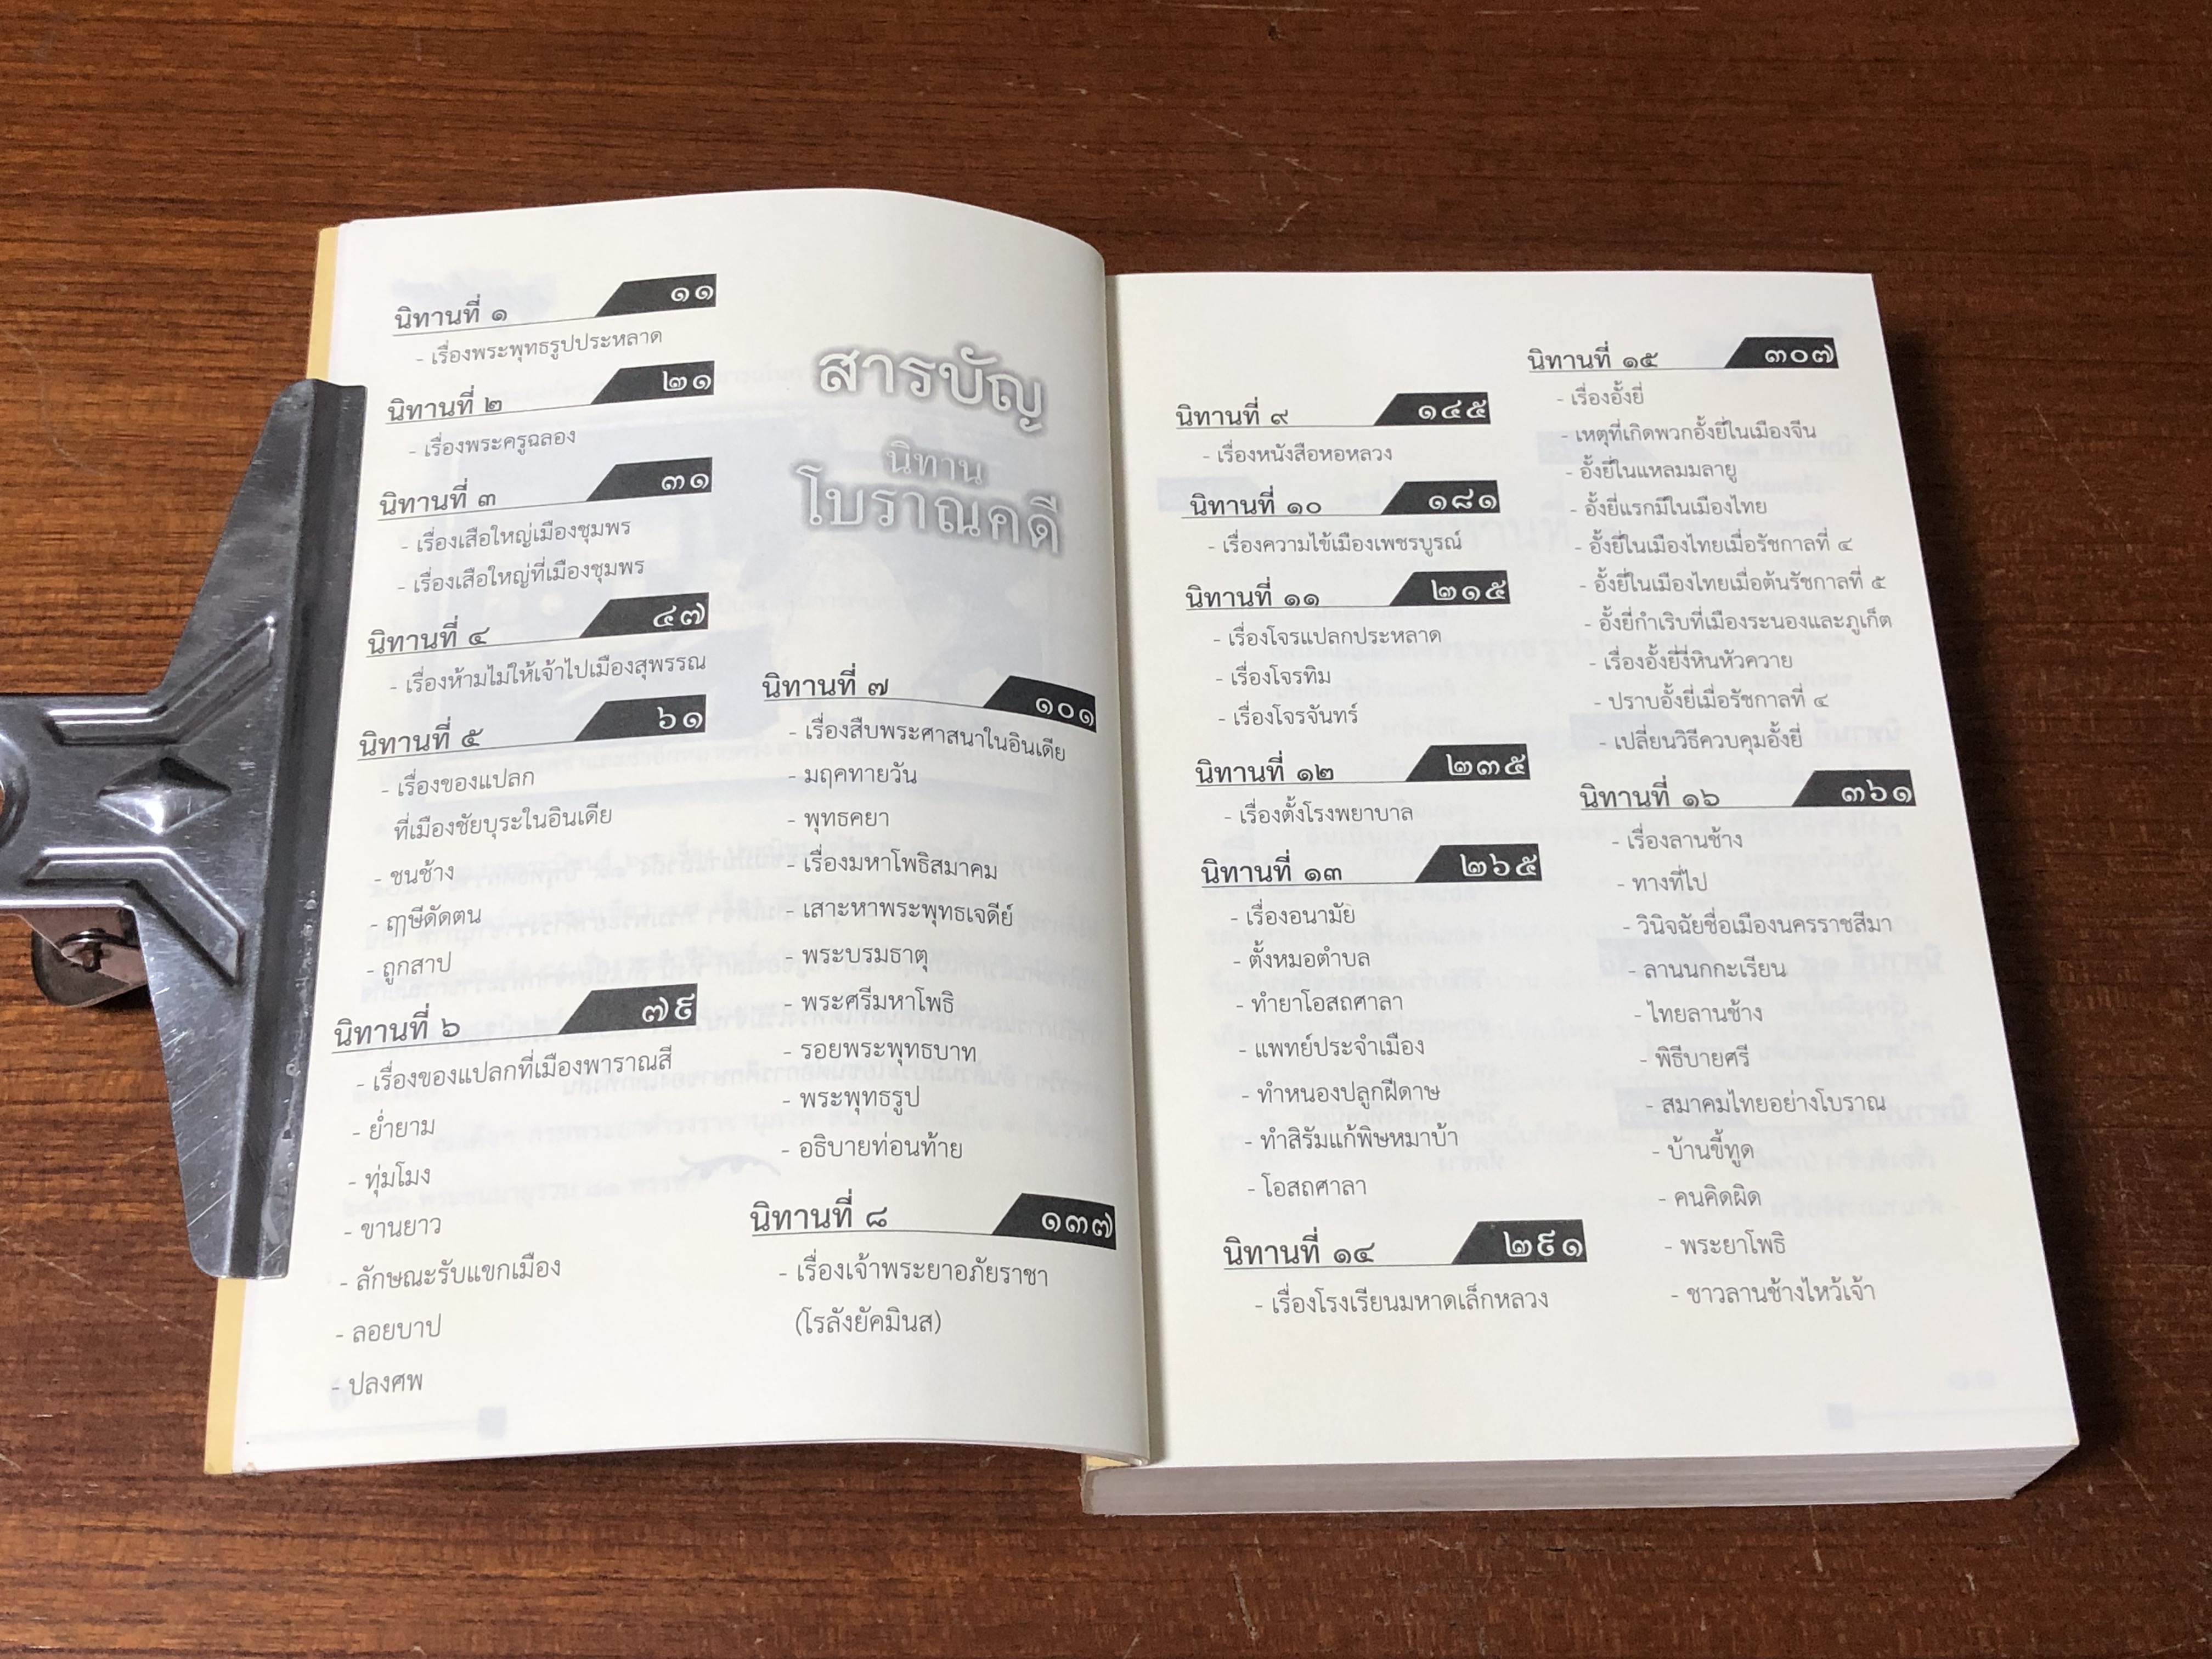 นิทานที่ ๑ ๑๑
- เรื่องพระพุทธรูปประหลาด
นิทานที่ ๒ ๒๑
- เรื่องพระครูฉลอง
นิทานที่ ๓ ๓๑
- เรื่องเสือใหญ่เมืองชุมพร
- เรื่องเสือใหญ่ที่เมืองชุมพร
นิทานที่ ๔ ๔๗
- เรื่องห้ามไม่ให้เจ้าไปเมืองสุพรรณ
นิทานที่ ๕ ๖๑
- เรื่องของแปลก
ที่เมืองชัยบุระในอินเดีย
- ชนช้าง
- ฤๅษีดัดตน
- ถูกสาป
นิทานที่ ๖ ๗๙
- เรื่องของแปลกที่เมืองพาราณสี
- ย่ำยาม
- ทุ่มโมง
- ขานยาว
- ลักษณะรับแขกเมือง
- ลอยบาป
- ปลงศพ
สารบัญ
นิทาน
โบราณคดี
นิทานที่ ๗ ๑๐๑
- เรื่องสืบพระศาสนาในอินเดีย
- มฤคทายวัน
- พุทธคยา
- เรื่องมหาโพธิสมาคม
- เสาะหาพระพุทธเจดีย์
- พระบรมธาตุ
- พระศรีมหาโพธิ
- รอยพระพุทธบาท
- พระพุทธรูป
- อธิบายท่อนท้าย
นิทานที่ ๘ ๑๓๗
- เรื่องเจ้าพระยาอภัยราชา
(โรลังยัคมินส)
นิทานที่ ๙ ๑๔๕
- เรื่องหนังสือหอหลวง
นิทานที่ ๑๐ ๑๘๑
- เรื่องความไข้เมืองเพชรบูรณ์
นิทานที่ ๑๑ ๒๑๕
- เรื่องโจรแปลกประหลาด
- เรื่องโจรทิม
- เรื่องโจรจันทร์
นิทานที่ ๑๒ ๒๓๕
- เรื่องตั้งโรงพยาบาล
นิทานที่ ๑๓ ๒๖๕
- เรื่องอนามัย
- ตั้งหมอตำบล
- ทำยาโอสถศาลา
- แพทย์ประจำเมือง
- ทำหนองปลูกฝีดาษ
- ทำสิรัมแก้พิษหมาบ้า
- โอสถศาลา
นิทานที่ ๑๔ ๒๙๑
- เรื่องโรงเรียนมหาดเล็กหลวง
นิทานที่ ๑๕ ๓๐๗
- เรื่องอั้งยี่
- เหตุที่เกิดพวกอั้งยี่ในเมืองจีน
- อั้งยี่ในแหลมมลายู
- อั้งยี่แรกมีในเมืองไทย
- อั้งยี่ในเมืองไทยเมื่อรัชกาลที่ ๔
- อั้งยี่ในเมืองไทยเมื่อต้นรัชกาลที่ ๕
- อั้งยี่กำเริบที่เมืองระนองและภูเก็ต
- เรื่องอั้งยี่งี่หินหัวควาย
- ปราบอั้งยี่เมื่อรัชกาลที่ ๔
- เปลี่ยนวิธีควบคุมอั้งยี่
นิทานที่ ๑๖ ๓๖๑
- เรื่องลานช้าง
- ทางที่ไป
- วินิจฉัยชื่อเมืองนครราชสีมา
- ลานนกกะเรียน
- ไทยลานช้าง
- พิธีบายศรี
- สมาคมไทยอย่างโบราณ
- บ้านขี้ทูด
- คนคิดผิด
- พระยาโพธิ
- ชาวลานช้างไหว้เจ้า